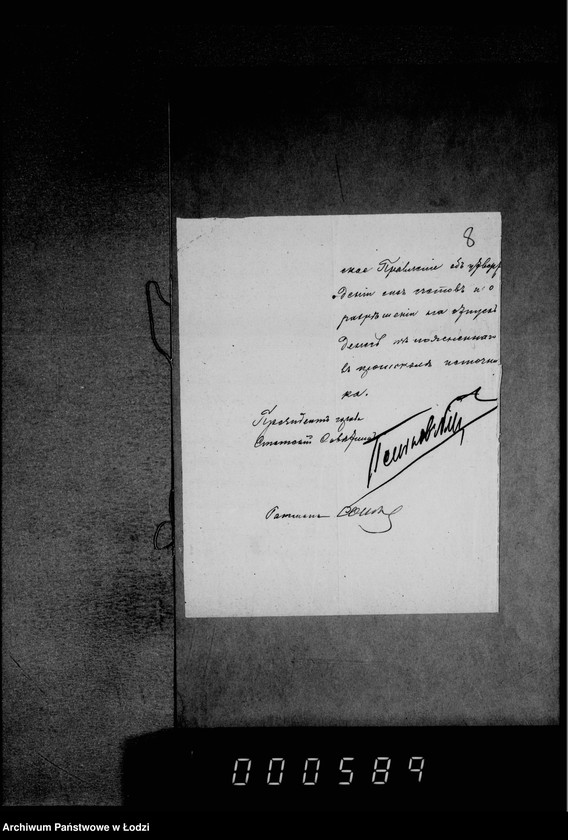 8
ское Правленіе объ утверж
деніи сихъ счетовъ и о
разрѣшеніи на отпускъ
денегъ изъ поясненнаго
въ протоколѣ источни
ка.
Президентъ города
Статскій Совѣтникъ Пеньковскій
Ратманъ
000589
Archiwum Państwowe w Łodzi